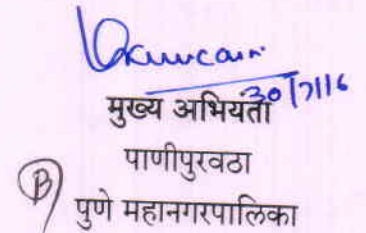 30/7/16
मुख्य अभियता
पाणीपुरवठा
B
पुणे महानगरपालिका